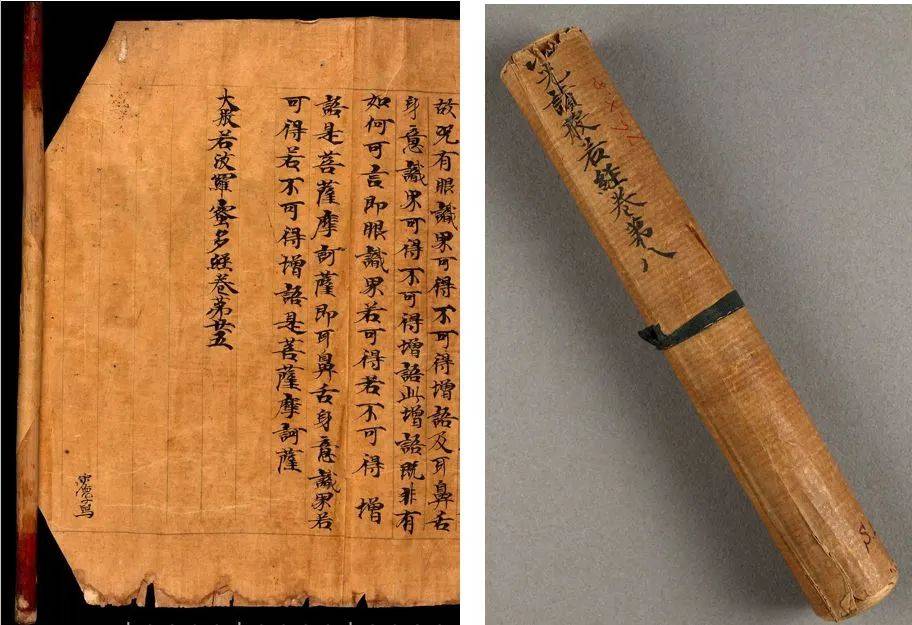 故况有眼識界可得不可得增語及耳鼻舌
身意識界可得不可得增語此增語既非有
如何可言即眼識界若可得若不可得增
語是菩薩摩訶薩即耳鼻舌身意識界若
可得若不可得增語是菩薩摩訶薩
大般若波羅蜜多經卷第廿五
光讚般若經卷第八